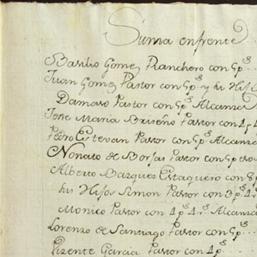 Suma enfrente
Basilio Gomez Ranchero con 9 p.s
Juan Gomez Pastor con 5 p.s y su Hijo
Damaso Pastor con 5 p.s Alcanza
Jose Maria Briseño Pastor con 4 p.
Pedro Estevan Pastor con 5 p.s Alcanza
Nonato de Borjas Pastor con 5 p.s
Alberto Bazques Estaquero con
su Hijo Simon Pastor con 3 p.s 4 r.s
Monico Pastor con 4 p.s 4 r.s Alcanza
Lorenzo de Santiago Pastor con 5 p.s
Vizente Garcia Pastor con 4 p.s